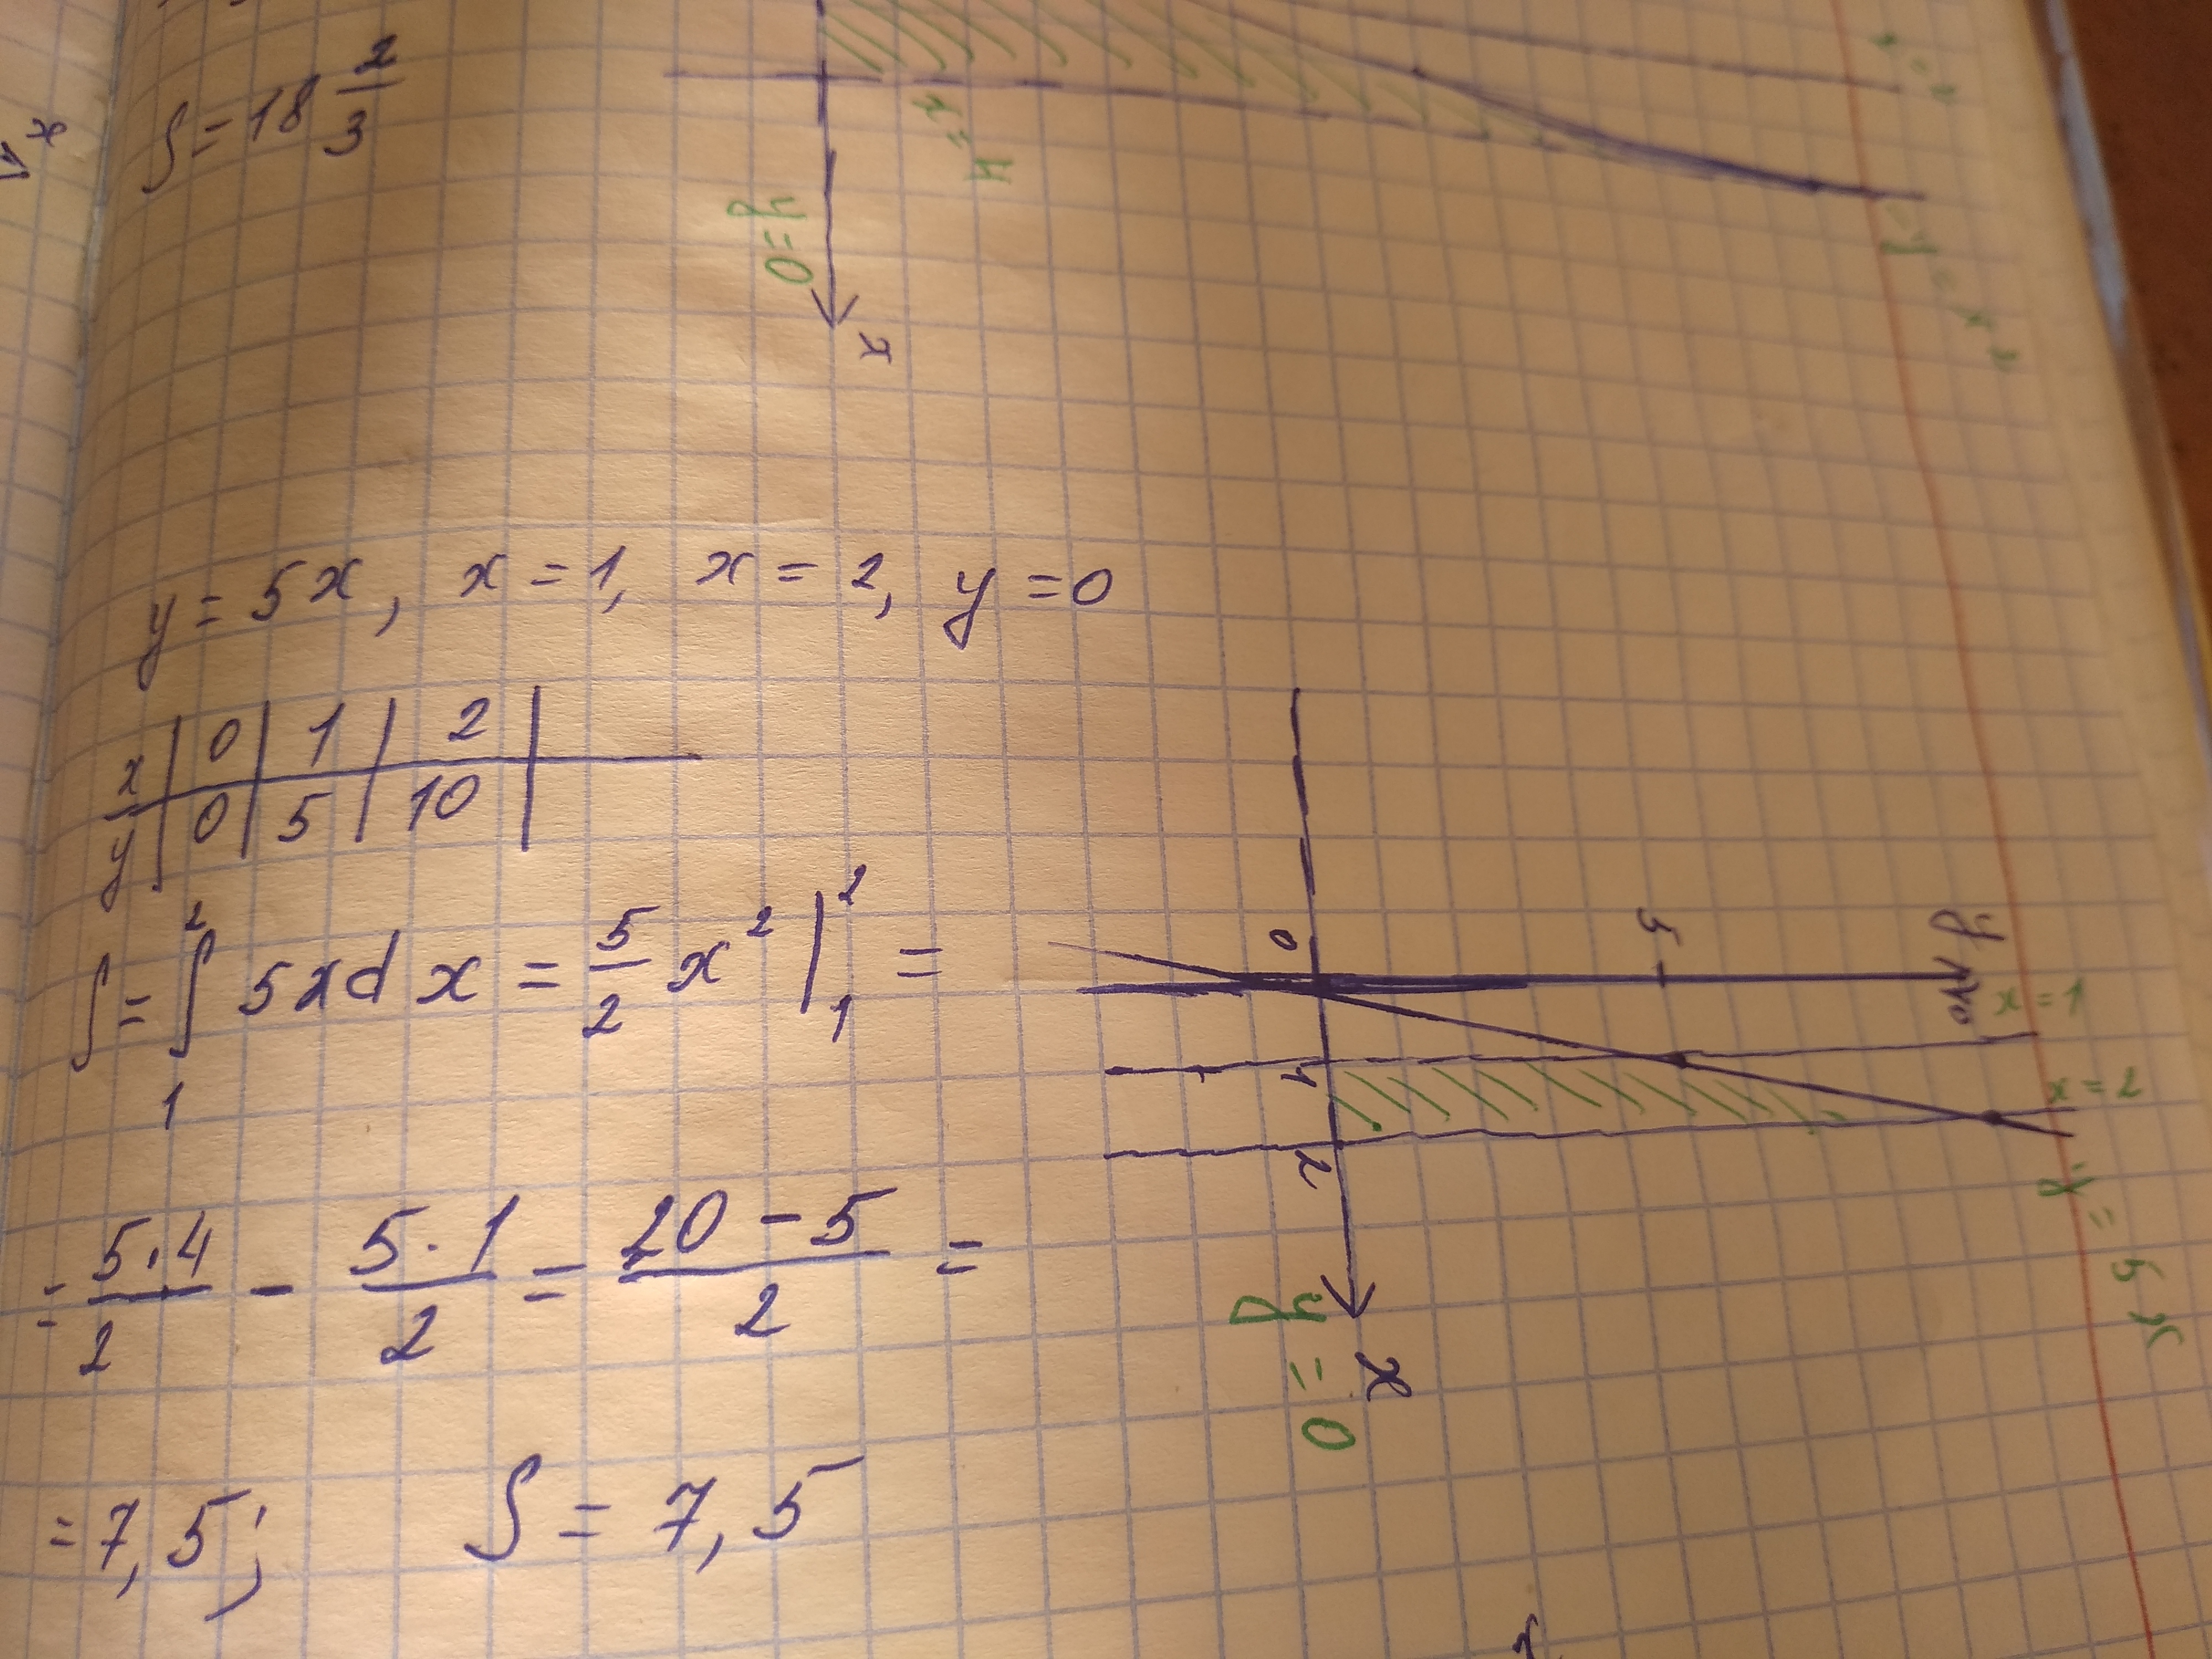 S = 18 2/3
y = 0
x = 4
x
y = x²
y = 5x, x = 1, x = 2, y = 0
x | 0 | 1 | 2 |
y | 0 | 5 | 10 |
S = ∫₁² 5x dx = 5/2 x² |₁² =
= 5·4/2 - 5·1/2 = 20-5/2 =
= 7,5; S = 7,5
y
10
5
0
1
2
x
x = 1
x = 2
y = 5x
y = 0